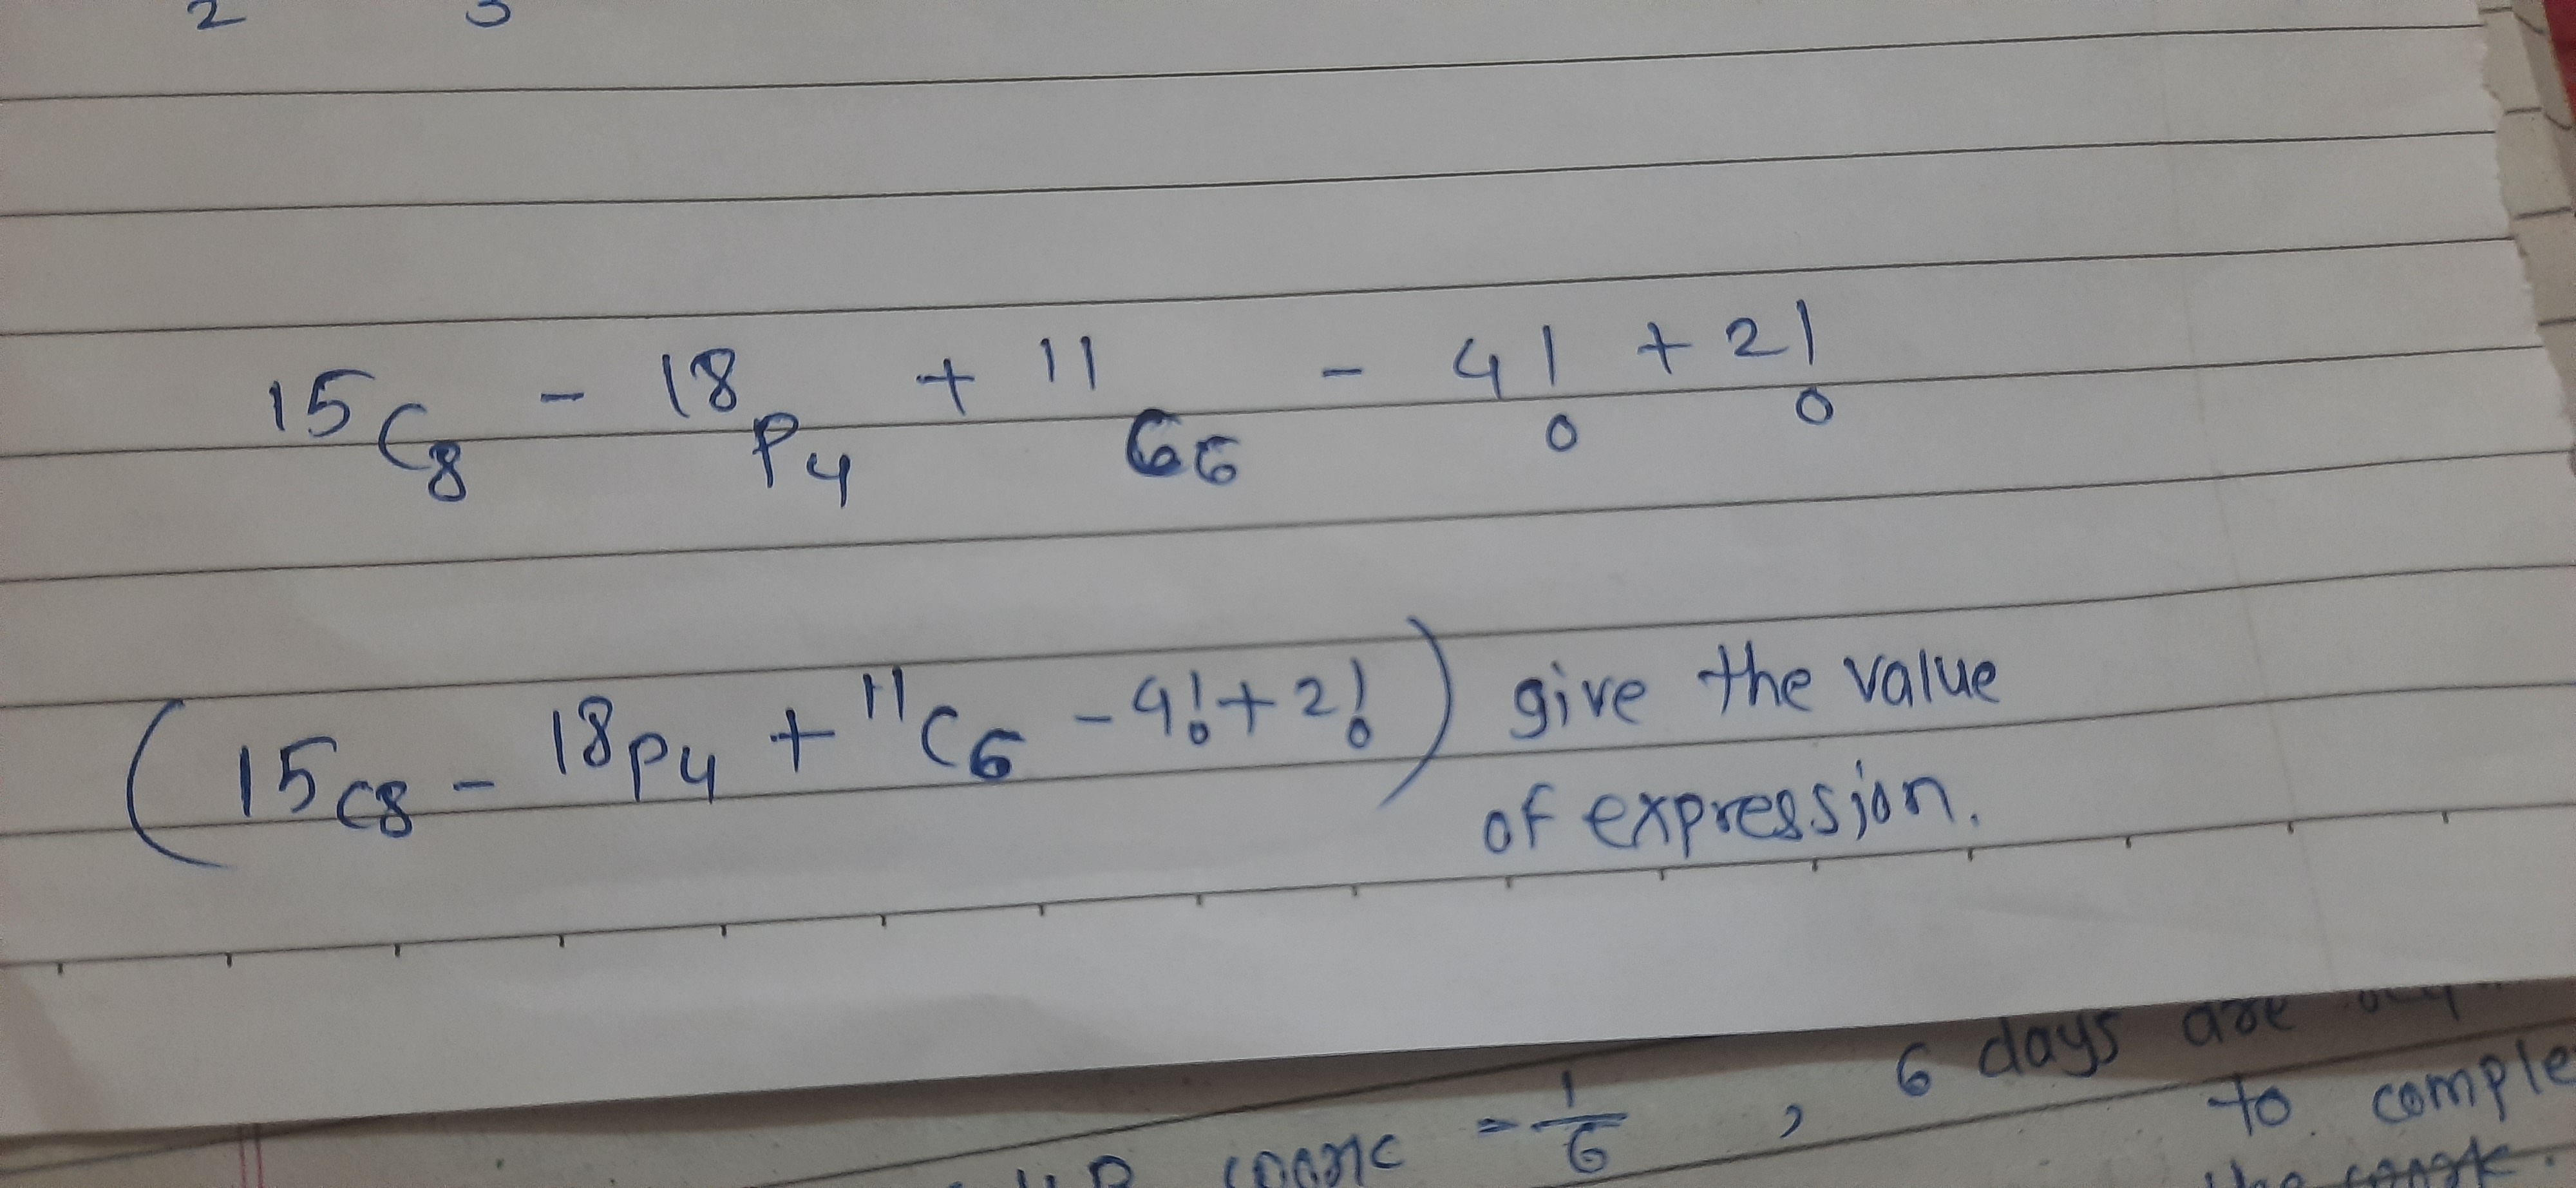 2 3
15C8 - 18P4 + 11C6 - 4! + 2!
(15C8 - 18P4 + 11C6 - 4! + 2!) give the value
of expression.
6 days are
= 1/6 , to comple